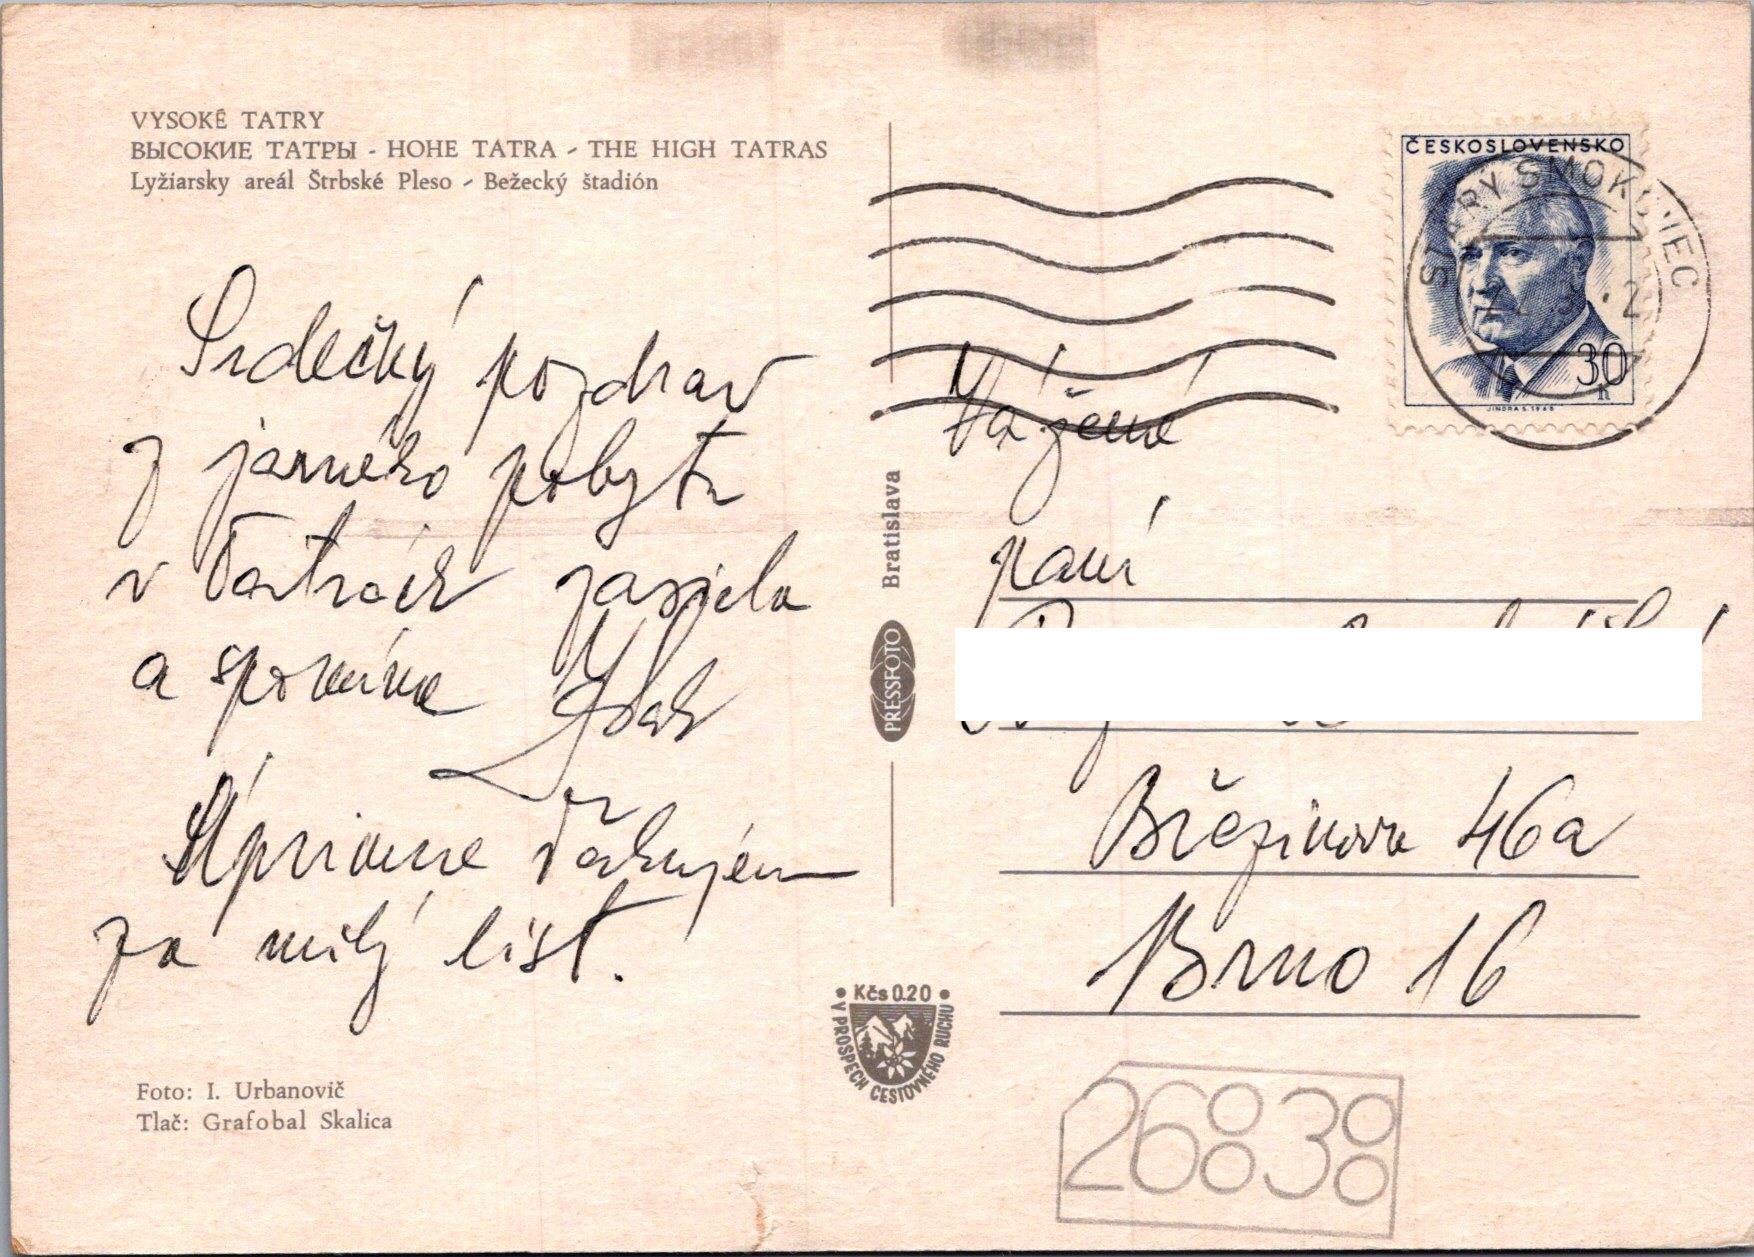 VYSOKÉ TATRY
ВЫСОКИЕ ТАТРЫ - HOHE TATRA - THE HIGH TATRAS
Lyžiarsky areál Štrbské Pleso - Bežecký štadión
ČESKOSLOVENSKO
STARÝ SMOKOVEC
30
h
JINDRA S. 1968
Srdečný pozdrav
z jarného pobytu
v Tatrách zasiela
a spomína
Úprimne ďakujem
za milý list.
Foto: I. Urbanovič
Tlač: Grafobal Skalica
Bratislava
PRESSFOTO
Kčs 0.20
V PROSPECH CESTOVNÉHO RUCHU
Vážená
pani
Březinova 46a
Brno 16
26838